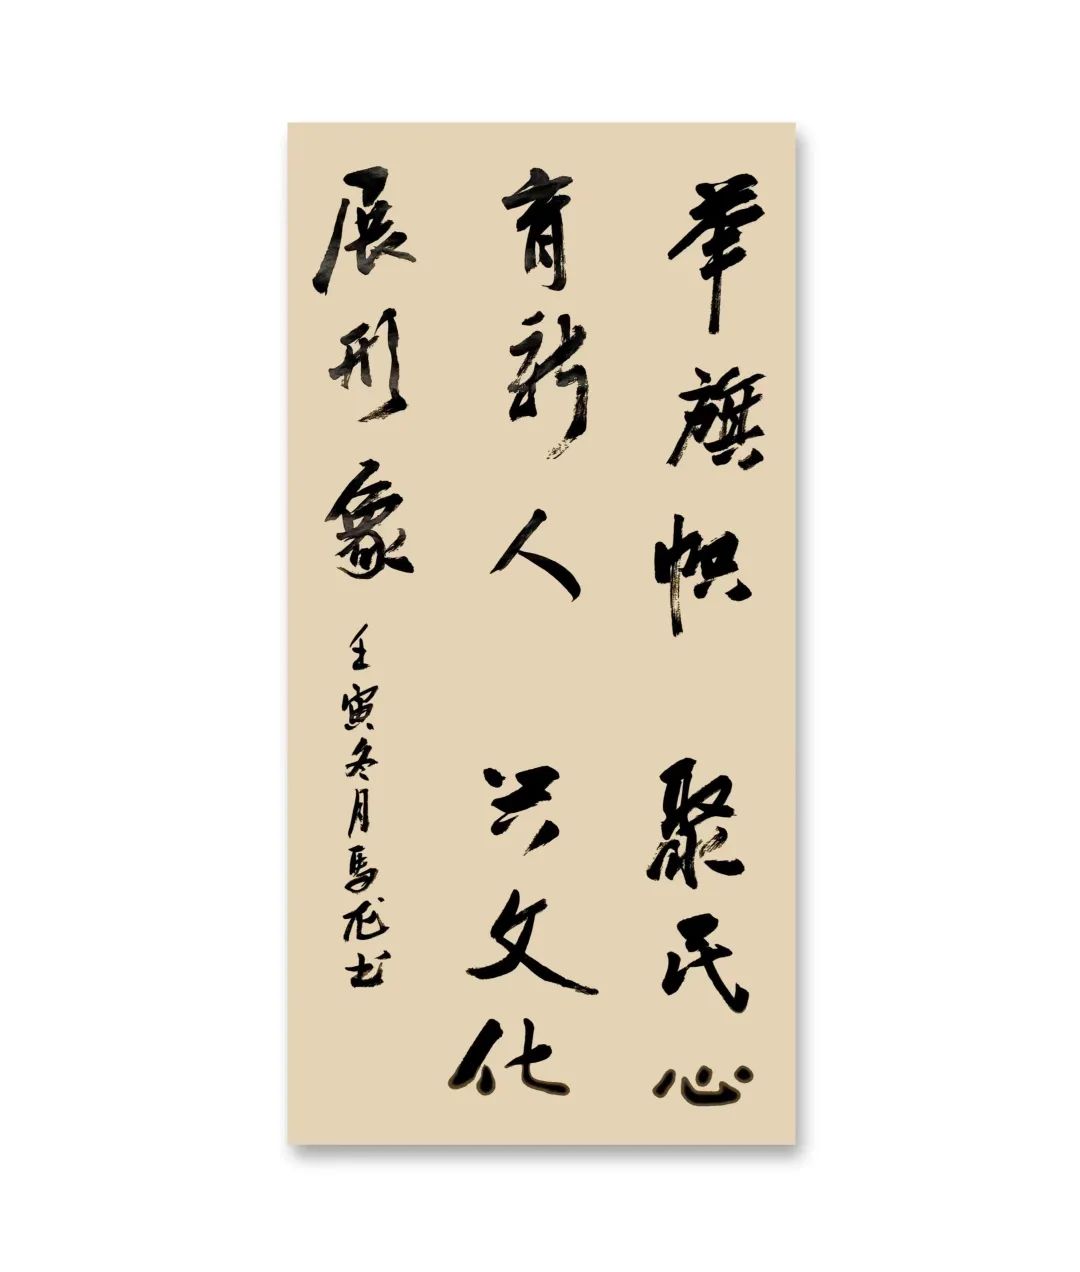 举旗帜 聚民心
育新人 兴文化
展形象
壬寅冬月馬龙书